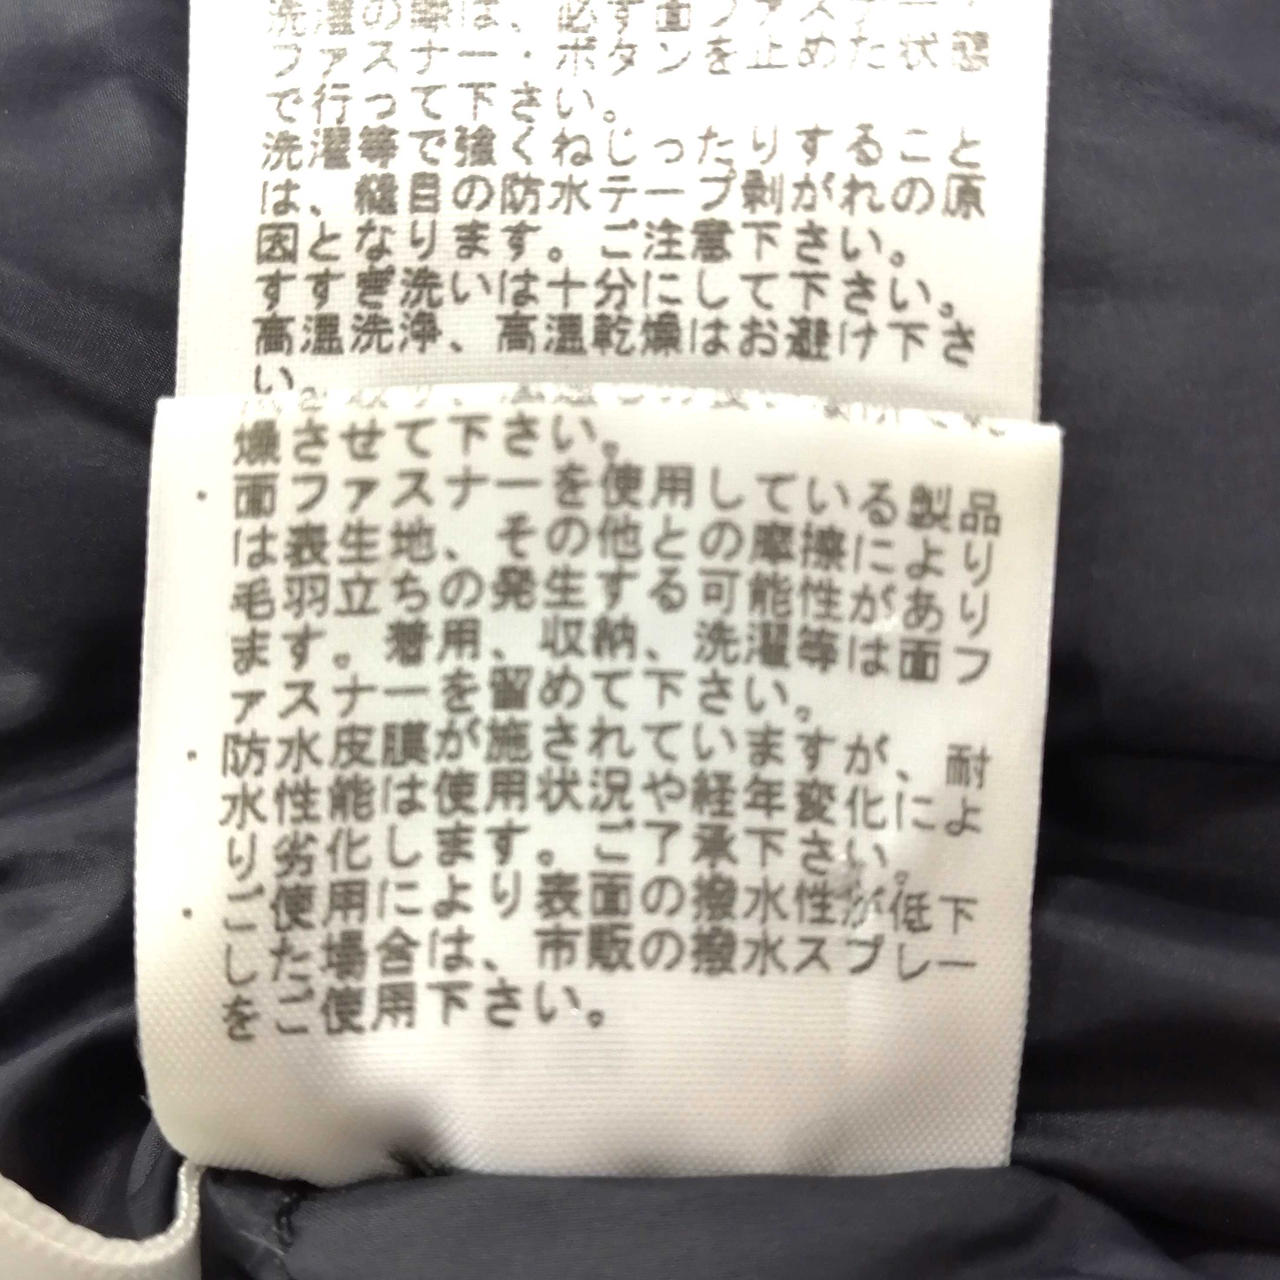 洗濯の際は、必ず面ファスナー・
ファスナー・ボタンを止めた状態
で行って下さい。
洗濯等で強くねじったりすること
は、縫目の防水テープ剥がれの原
因となります。ご注意下さい。
すすぎ洗いは十分にして下さい。
高温洗浄、高温乾燥はお避け下さ
い。
燥させて下さい。
・面ファスナーを使用している製品
は表生地、その他との摩擦により
毛羽立ちの発生する可能性があり
ます。着用、収納、洗濯等は面フ
ァスナーを留めて下さい。
・防水皮膜が施されていますが、耐
水性能は使用状況や経年変化によ
り劣化します。ご了承下さい。
・ご使用により表面の撥水性が低下
した場合は、市販の撥水スプレー
をご使用下さい。